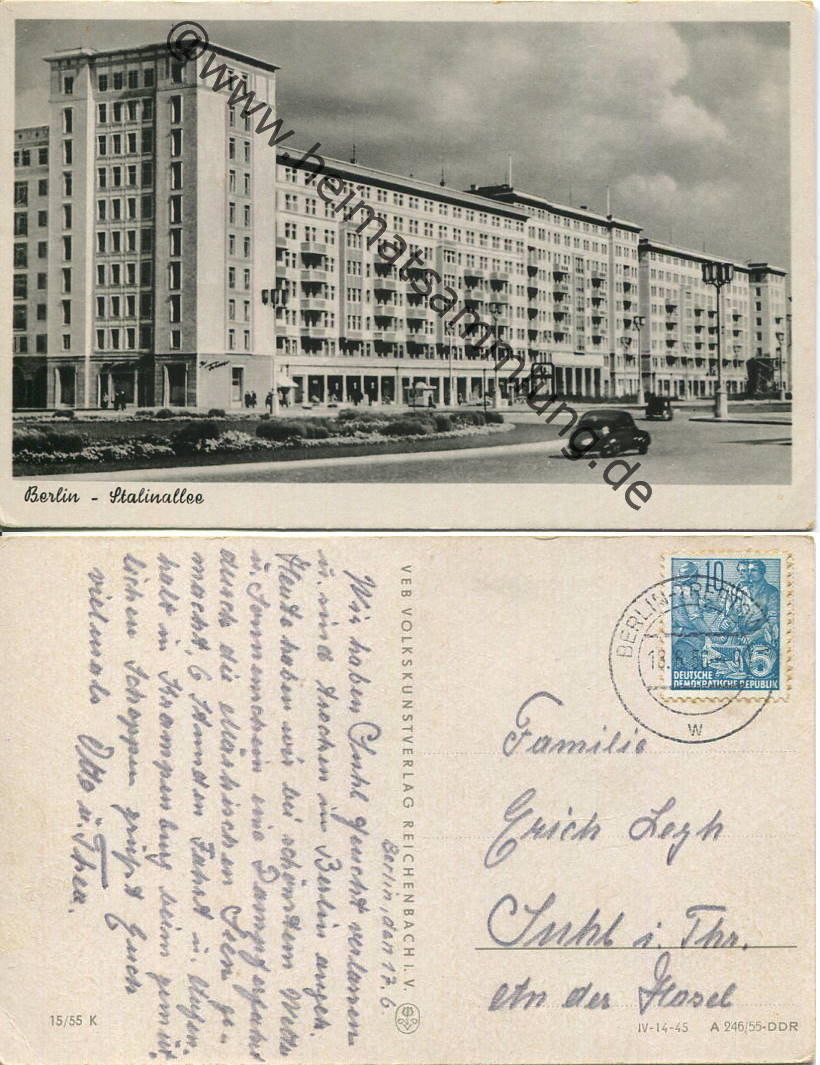 @www.heimatsammlung.de
Berlin - Stalinallee
VEB VOLKSKUNSTVERLAG REICHENBACH I. V.
Berlin, den 17. 6.
Wir haben Suhl feucht verlassen
u. sind trocken in Berlin angek.
Heute haben wir bei schönstem Wetter
u. Sonnenschein eine Dampferfahrt
durch die Märkischen Seen ge-
macht, 6 Stunden Fahrt u. Aufen-
halt in Krampenburg beim gemüt-
lichen Schoppen grüßt Euch
vielmals Otto u. Thea.
15/55 K
10
5
DEUTSCHE
DEMOKRATISCHE REPUBLIK
BERLIN-TREPTOW
18.6.56
w
Familie
Erich
Suhl i. Thr.
An der Hasel
IV-14-45 A 246/55-DDR